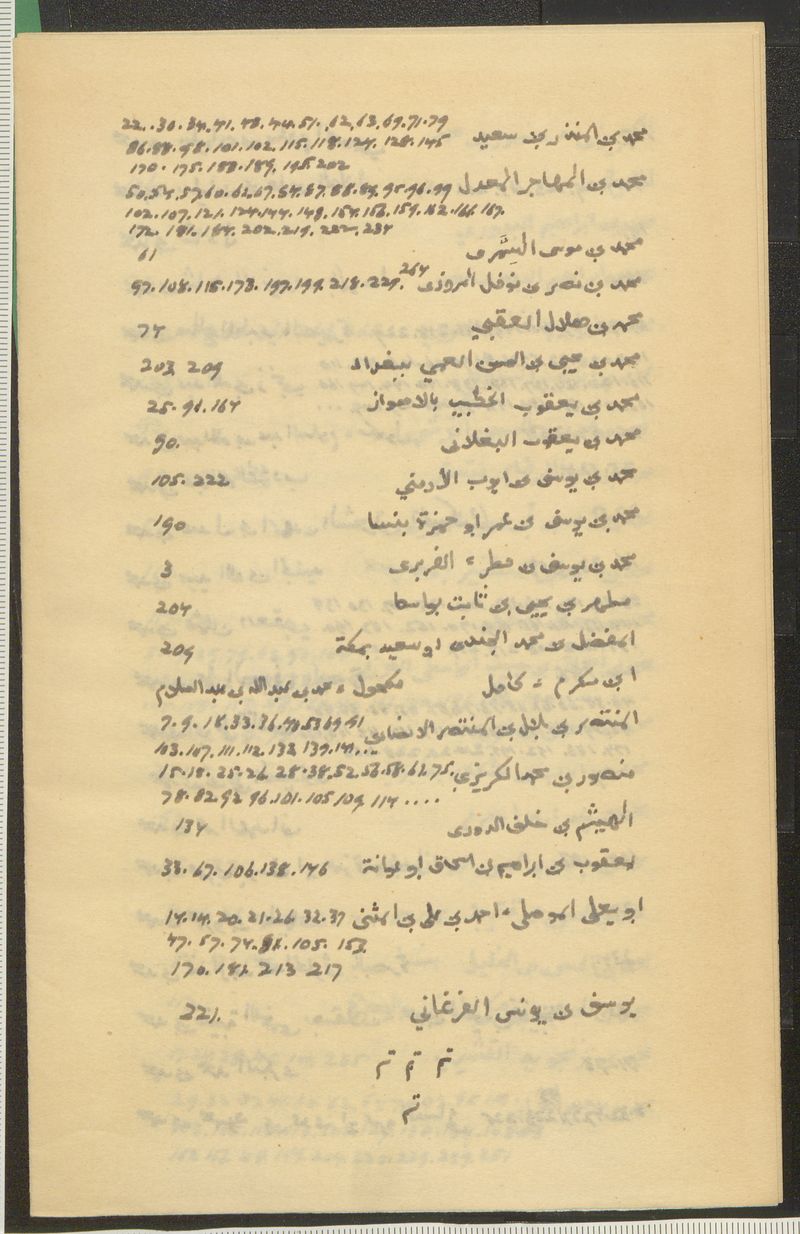 محمد بن المنذر بن سعيد 22. 30. 34. 41. 43. 44. 51. 62, 63, 69. 71. 79
86. 88. 98. 101. 102. 115. 118. 124. 128. 145
170. 175. 188. 189. 195. 202
محمد بن المهاجر المعدل 50, 54, 57, 60. 62, 67. 84. 87. 88. 89. 95. 96. 99
102. 107. 121. 124. 144. 149. 154. 156. 159. 162. 166. 167.
172. 181. 184. 202. 219. 222. 234
محمد بن موسى 61
محمد بن نصر بن نوفل المروزى 97. 108. 115. 173. 197. 199. 218. 229. 264
محمد بن هلال العقبي 74
محمد بن يحيى بن الحسن العمي ببغداد 203 209
محمد بن يعقوب الخطيب بالاهواز 25. 91. 164
محمد بن يعقوب البغلانى 90.
محمد بن يوسف بن ايوب الأرمني 105. 222
محمد بن يوسف بن عمر ابو حمزة بنسا 190
محمد بن يوسف بن مطر = الفربرى 3
بن يحيى بن ثابت 204
المفضل بن محمد الجندى ابو سعيد بمكة 209
ابن مكرم = كامل
مكحول = محمد بن عبد الله بن عبد السلام
المنتصر بن بلال بن المنتصر الانصارى 7. 9. 18. 33. 36. 40. 53 69 91
103. 107. 111. 112. 132 139. 141 ...
منصور بن محمد الكريزي 15. 18. 25. 26 28. 38. 52. 56. 58. 62. 75.
78. 82 92 96. 101. 105 109 114 ....
الهيثم بن خلف الدورى 134
يعقوب بن ابراهيم بن اسحاق ابو عوانة 33. 67. 106. 138. 146
ابو يعلى الموصلى = احمد بن على بن المثنى 14. 14. 20. 21. 26 32. 37
47. 57. 74. 81. 105. 153
170. 181 213 217
يوسف بن يونس الفرغاني 221.
تم تم تم
تم